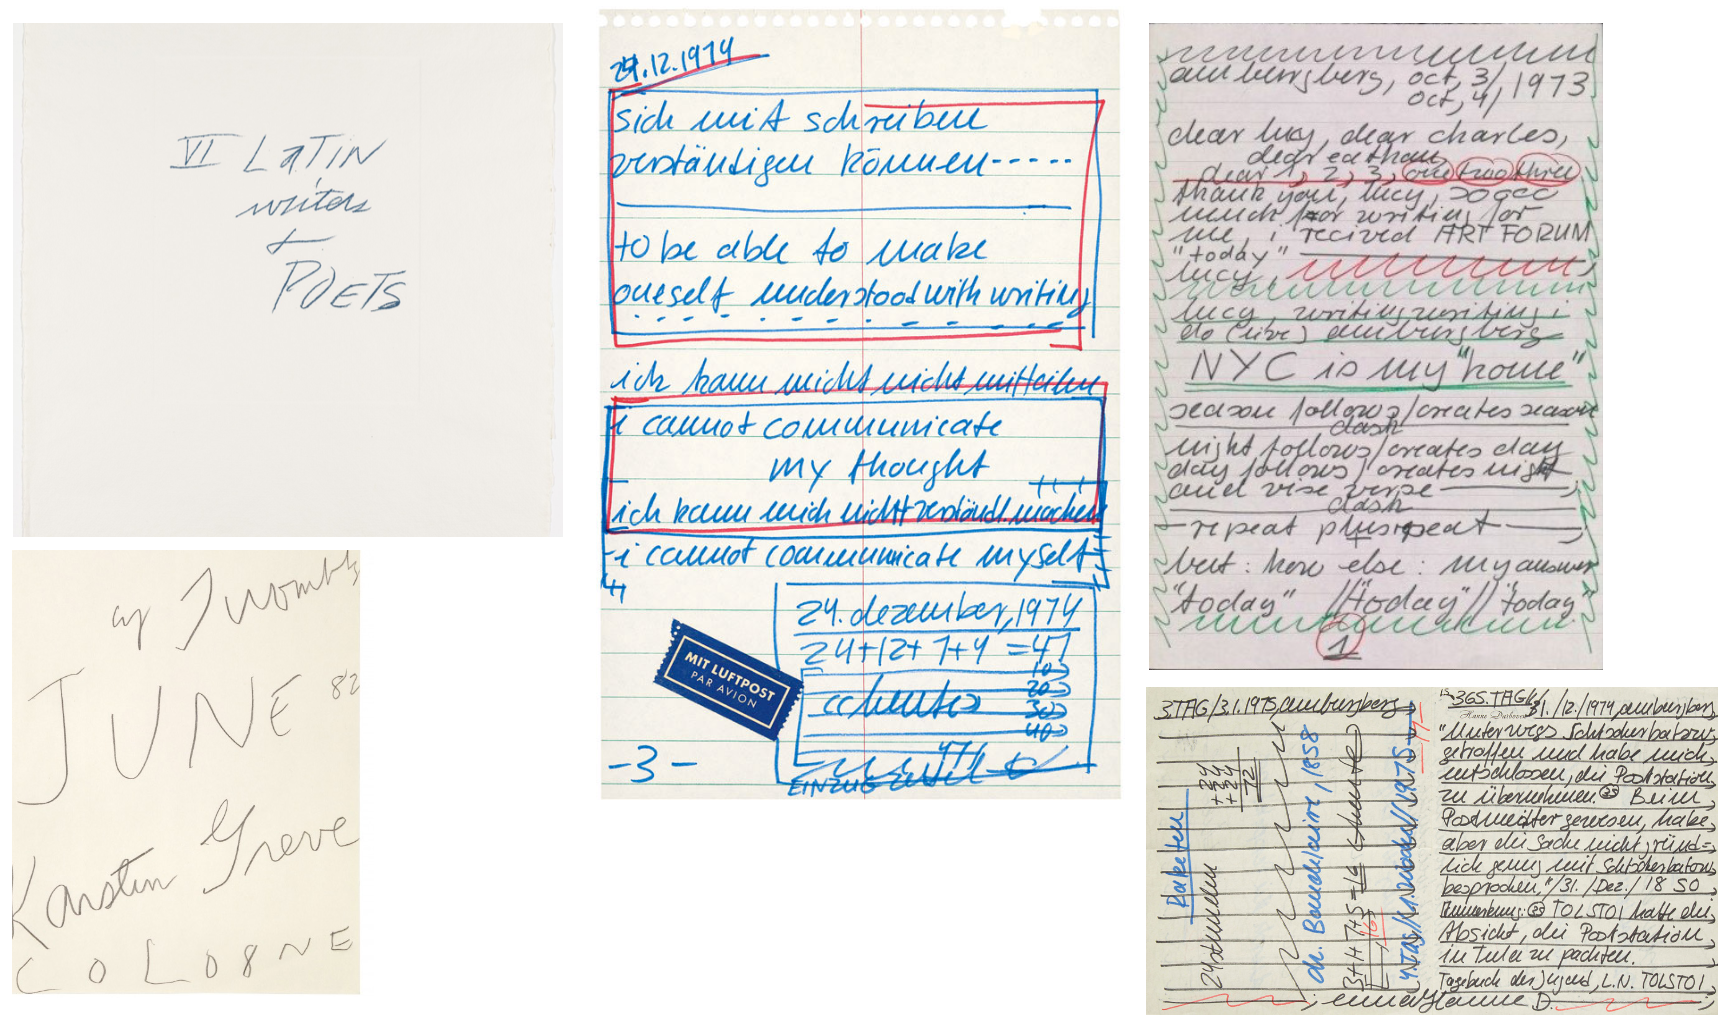 VI LATIN
writers
+
POETS
cy Twombly
JUNE 82
Karsten Greve
COLOGNE
24.12.1974
sich mit schreiben
verständigen können-----
to be able to make
oneself understood with writing
ich kann mich nicht mitteilen
i cannot communicate
my thought
ich kann mich nicht verständl. machen
i cannot communicate myself
24. dezember, 1974
24+12+7+4 = 47
10
20
30
40
MIT LUFTPOST
PAR AVION
-3-
am burgberg, oct, 3/ 1973
oct, 4/
dear lucy, dear charles,
dear eathan
dear 1, 2, 3, one two three
thank you, lucy,
much for writing for
me, i recived ART FORUM
"today"
lucy,
lucy, writing writing i
do (live) am burgberg
NYC is my "home"
season follows/creates season
dash
night follows/creates day
day follows/creates night
and vise verse
dash
repeat plus repeat
but: how else: my answer
"today" // "today" // "today"
1
3.TAG/3.1.1975, am burgberg
24
+24
+24
72
Raketen
24 stunden
ch. Baudelaire, 1858
3+1+7+5=16
16
4.TAG/
1975
365. TAG
31./12./1974, am burgberg
Hanne Darboven
"Unterwegs Schtscherbatow
getroffen und habe mich
entschlossen, die Poststation
zu übernehmen. 35 Beim
Postmeister gewesen, habe
aber die Sache nicht gründ=
lich genug mit Schtscherbatow
besprochen,"/31./Dez./1850
Anmerkung: 35 TOLSTOI hatte die
Absicht, die Poststation
in Tula zu pachten.
Tagebuch der Jugend, L.N. TOLSTOI
Hanne D.